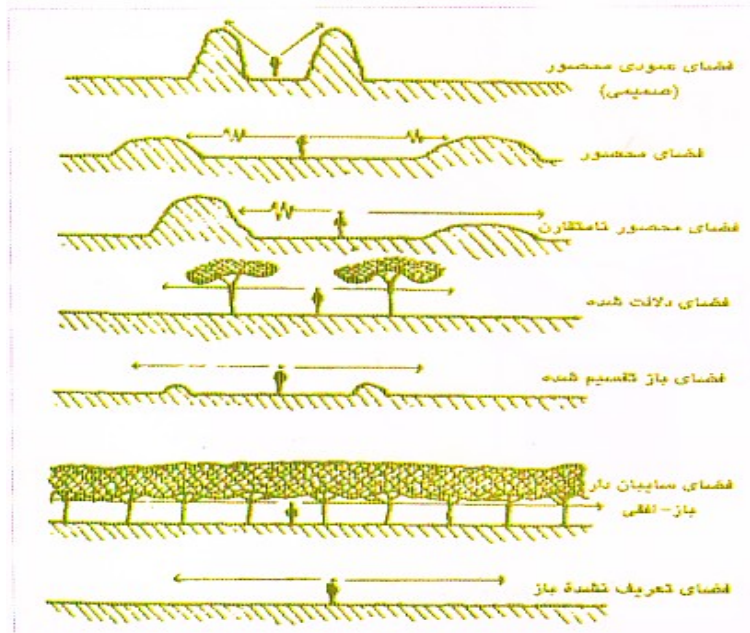 فضای عمودی محصور
(صمیمی)
فضای محصور
فضای محصور نامتقارن
فضای دلالت شده
فضای باز تقسیم شده
فضای سایبان دار
باز-افقی
فضای تعریف نشدة باز